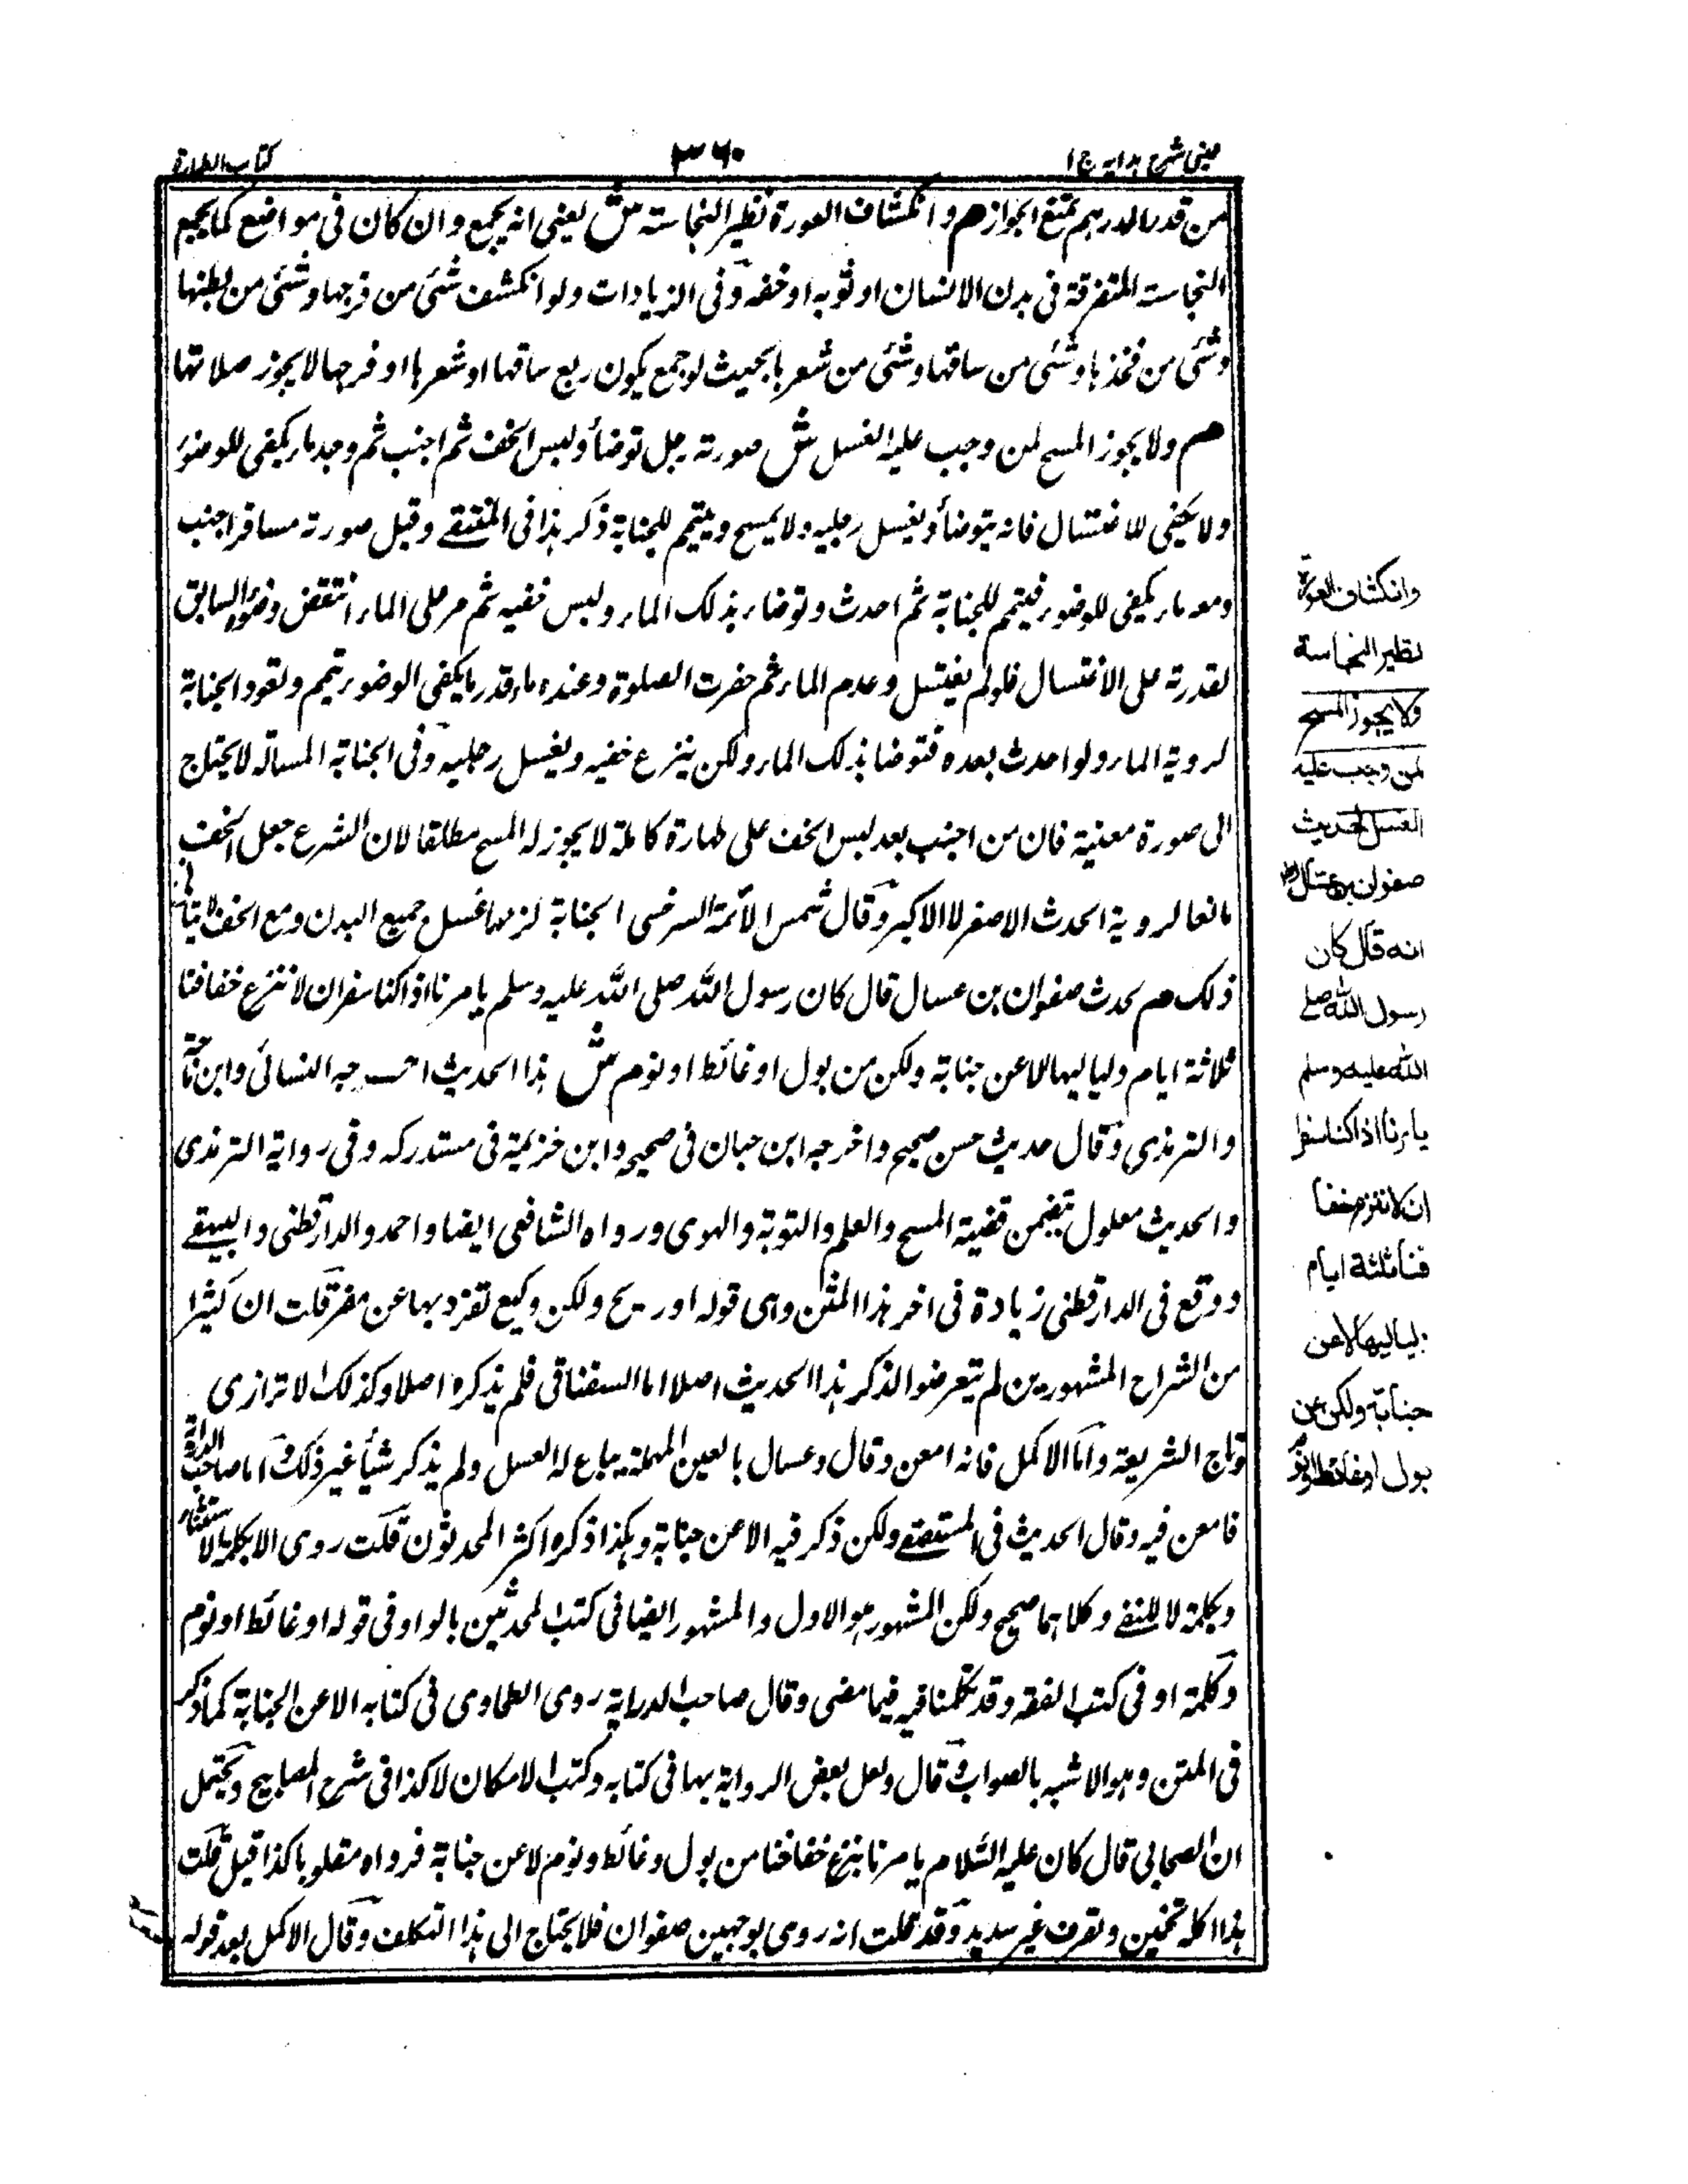 عینی شرح ہدایہ ج ا
۳۶۰
کتاب الطہارة
من قدر الدرہم یمنع الجواز ھم وانکشاف العورة نظیر النجاستہ ش یعنی انہ یجمع وان کان فی مواضع کما یجمع
النجاستہ المتفرقة فی بدن الانسان او ثوبہ او خفہ وفی الزیادات ولو انکشف شئی من فرجہا وشئی من بطنہا
وشئی من فخذہا وشئی من ساقہا وشئی من شعرہا بحیث لو جمع یکون ربع ساقہا او شعرہا او فرجہا لایجوز صلاتہا
ھم ولا یجوز المسح لمن وجب علیہ الغسل ش صورتہ رجل توضأ ولبس الخف ثم اجنب ثم وجد ماء یکفی للوضوء
ولا یکفی للاغتسال فانہ یتوضأ ویغسل رجلیہ ولا یمسح ویتیم للجنابة ذکر ہذا فی المنتقے وقیل صورتہ مسافر اجنب
ومعہ ماء یکفی للوضوء فیتمم للجنابة ثم احدث وتوضاء بذلک الماء ولبس خفیہ ثم مر علی الماء انتقض وضوءہ السابق
لقدرتہ علی الاغتسال فلو لم یغتسل وعدم الماء ثم حضرت الصلوة وعندہ ماء قدر ما یکفی الوضوء تیمم وتعود الجنابة
لرویة الماء ولو احدث بعدہ فتوضا بذلک الماء ولکن ینزع خفیہ ویغسل رجلیہ وفی الجنابة المسالة لایحتاج
الی صورة معنیة فان من اجنب بعد لبس الخف علی طہارة کاملة لایجوز لہ المسح مطلقا لان الشرع جعل الخف
مانعا لرویة الحدث الاصغر لا الاکبر وقال شمس الأئمة السرخسی الجنابة لزمہا غسل جمیع البدن ومع الخف لایتأتی
ذلک ھم لحدث صفوان بن عسال قال کان رسول اللہ صلی اللہ علیہ وسلم یامرنا اذا کنا سفرا ان لاننزع خفافنا
ثلاثة ایام ولیالیہا لا عن جنابة ولکن من بول او غائط او نوم ش ہذا الحدیث اخرجہ النسائی وابن ماجة
والترمذی وقال حدیث حسن صحیح واخرجہ ابن حبان فی صحیحہ وابن خزیمة فی مستدرکہ وفی روایة الترمذی
والحدیث معلول یتضمن قضیة المسح والعلم والتوبة والہوی ورواہ الشافعی ایضا واحمد والدارقطنی والبیہقے
ووقع فی الدارقطنی زیادة فی اخر ہذا المتن وہی قولہ او ریح ولکن وکیع تفرد بہا عن مفر قلت ان کثیرا
من الشراح المشہورین لم یتعرضوا لذکر ہذا الحدیث اصلا اما السفناقی فلم یذکرہ اصلا وکذلک الاترازی
وتاج الشریعة واما الاکمل فانہ امعن وقال وعسال بالعین المہملة یباع لہ العسل ولم یذکر شیأ غیر ذلک واما صاحب الدرایة
فامعن فیہ وقال الحدیث فی المستصفے ولکن ذکر فیہ الا عن جنابة وہکذا ذکرہ اکثر المحدثون قلت روی الا بکلمة الاستثناء
وبکلمة لا للنفے وکلاہما صحیح ولکن المشہور ہو الاول والمشہور ایضا فی کتب المحدثین بالواو فی قولہ او غائط او نوم
وکلمة او فی کتب الفقہ وقد تکلمنا فیہ فیما مضی وقال صاحب الدرایة روی الطحاوی فی کتابہ الا عن الجنابة کما ذکر
فی المتن وہو الاشبہ بالصواب وقال ولعل بعض الروایة بہا فی کتابہ وکتب الا مکان لا کذا فی شرح المصابیح ویحتمل
ان الصحابی قال کان علیہ السلام یامرنا بنزع خفافنا من بول وغائط ونوم لا عن جنابة فرواہ مقلوبا کذا قیل قلت
ہذا کلہ تخمین وتصرف غیر سدید وقد قلت انہ روی بوجہین صفوان فلا یحتاج الی ہذا التکلف وقال الاکمل بعد قولہ
وانکشاف العورة
نظیر النجاسة
ولا یجوز المسح
لمن وجب علیہ
الغسل لحدیث
صفوان بن عسال رض
انه قال کان
رسول الله صلے
الله علیه وسلم
یامرنا اذا کنا سفرا
ان لا ننزع خفا
فنا ثلثة ایام
ولیالیها لا عن
جنابة ولکن عن
بول او غائط او نوم